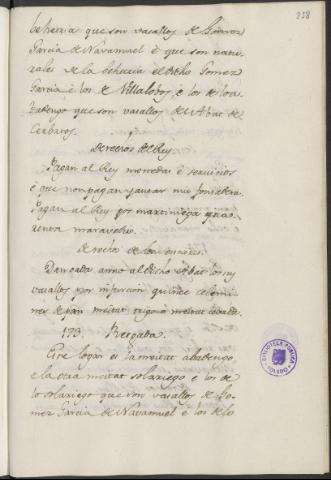 338
behetria que son vasallos de Gomez
Garcia de Navamuel è que son natu-
rales de la behetria el dicho Gomez
Garcia è los de Villalobos, è los de lo a-
badengo que son vasallos del Abat de
Cerbatos.
Derechos del Rey
Pagan al Rey monedas è servicios
è que non pagan yantar nin fonsadera.
Pagan al Rey por martiniega qua-
renta maravedis.
Derechos de los
Dan cada anno al dicho Abat los sus
vasallos por infurcion quince celemi-
nes de pan meitat trigo è meitat cebada.
173. Bregada.
Este logar es la meitat abadengo,
e la otra meitat solariego è los de
lo solariego que son vasallos de Go-
mez Garcia de Navamuel è los de lo
BIBLIOTECA PUBLICA
TOLEDO